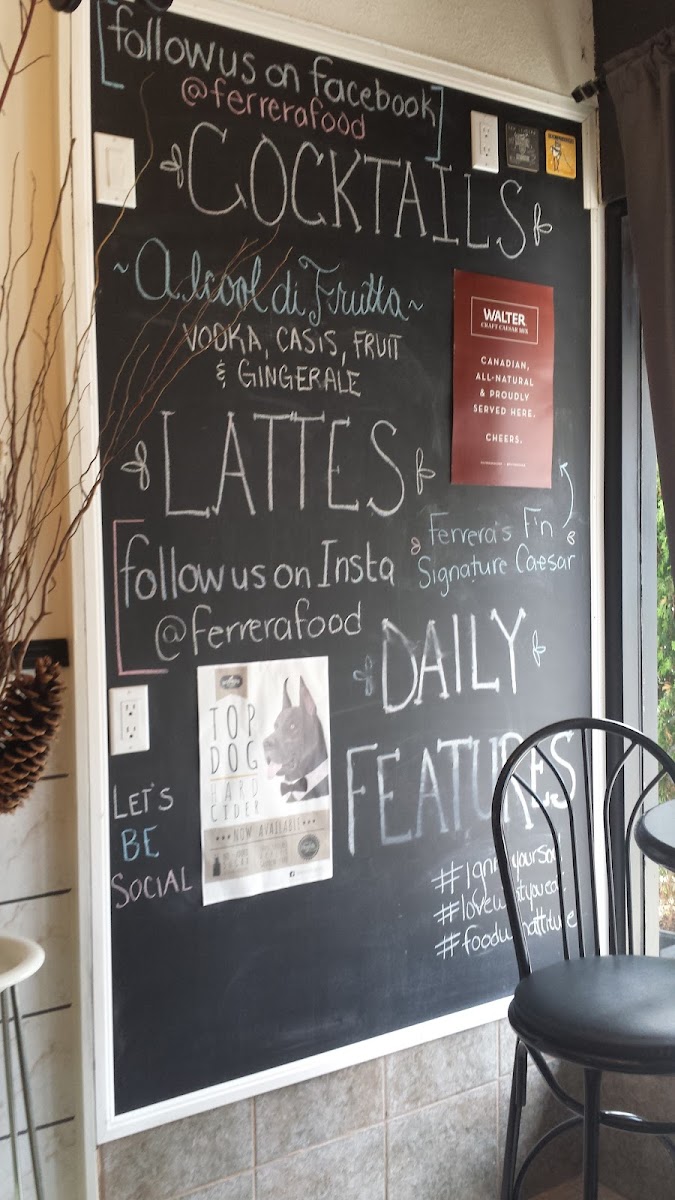 follow us on facebook
@ferrerafood
COCKTAILS
~Alcool di Frutta~
VODKA, CASIS, FRUIT
& GINGERALE
WALTER
CRAFT CAESAR MIX
CANADIAN,
ALL-NATURAL
& PROUDLY
SERVED HERE.
CHEERS.
LATTES
Ferrera's F'n
Signature Caesar
follow us on Insta
@ferrerafood
DAILY
FEATURES
TOP
DOG
HARD
CIDER
NOW AVAILABLE
LET'S
BE
SOCIAL